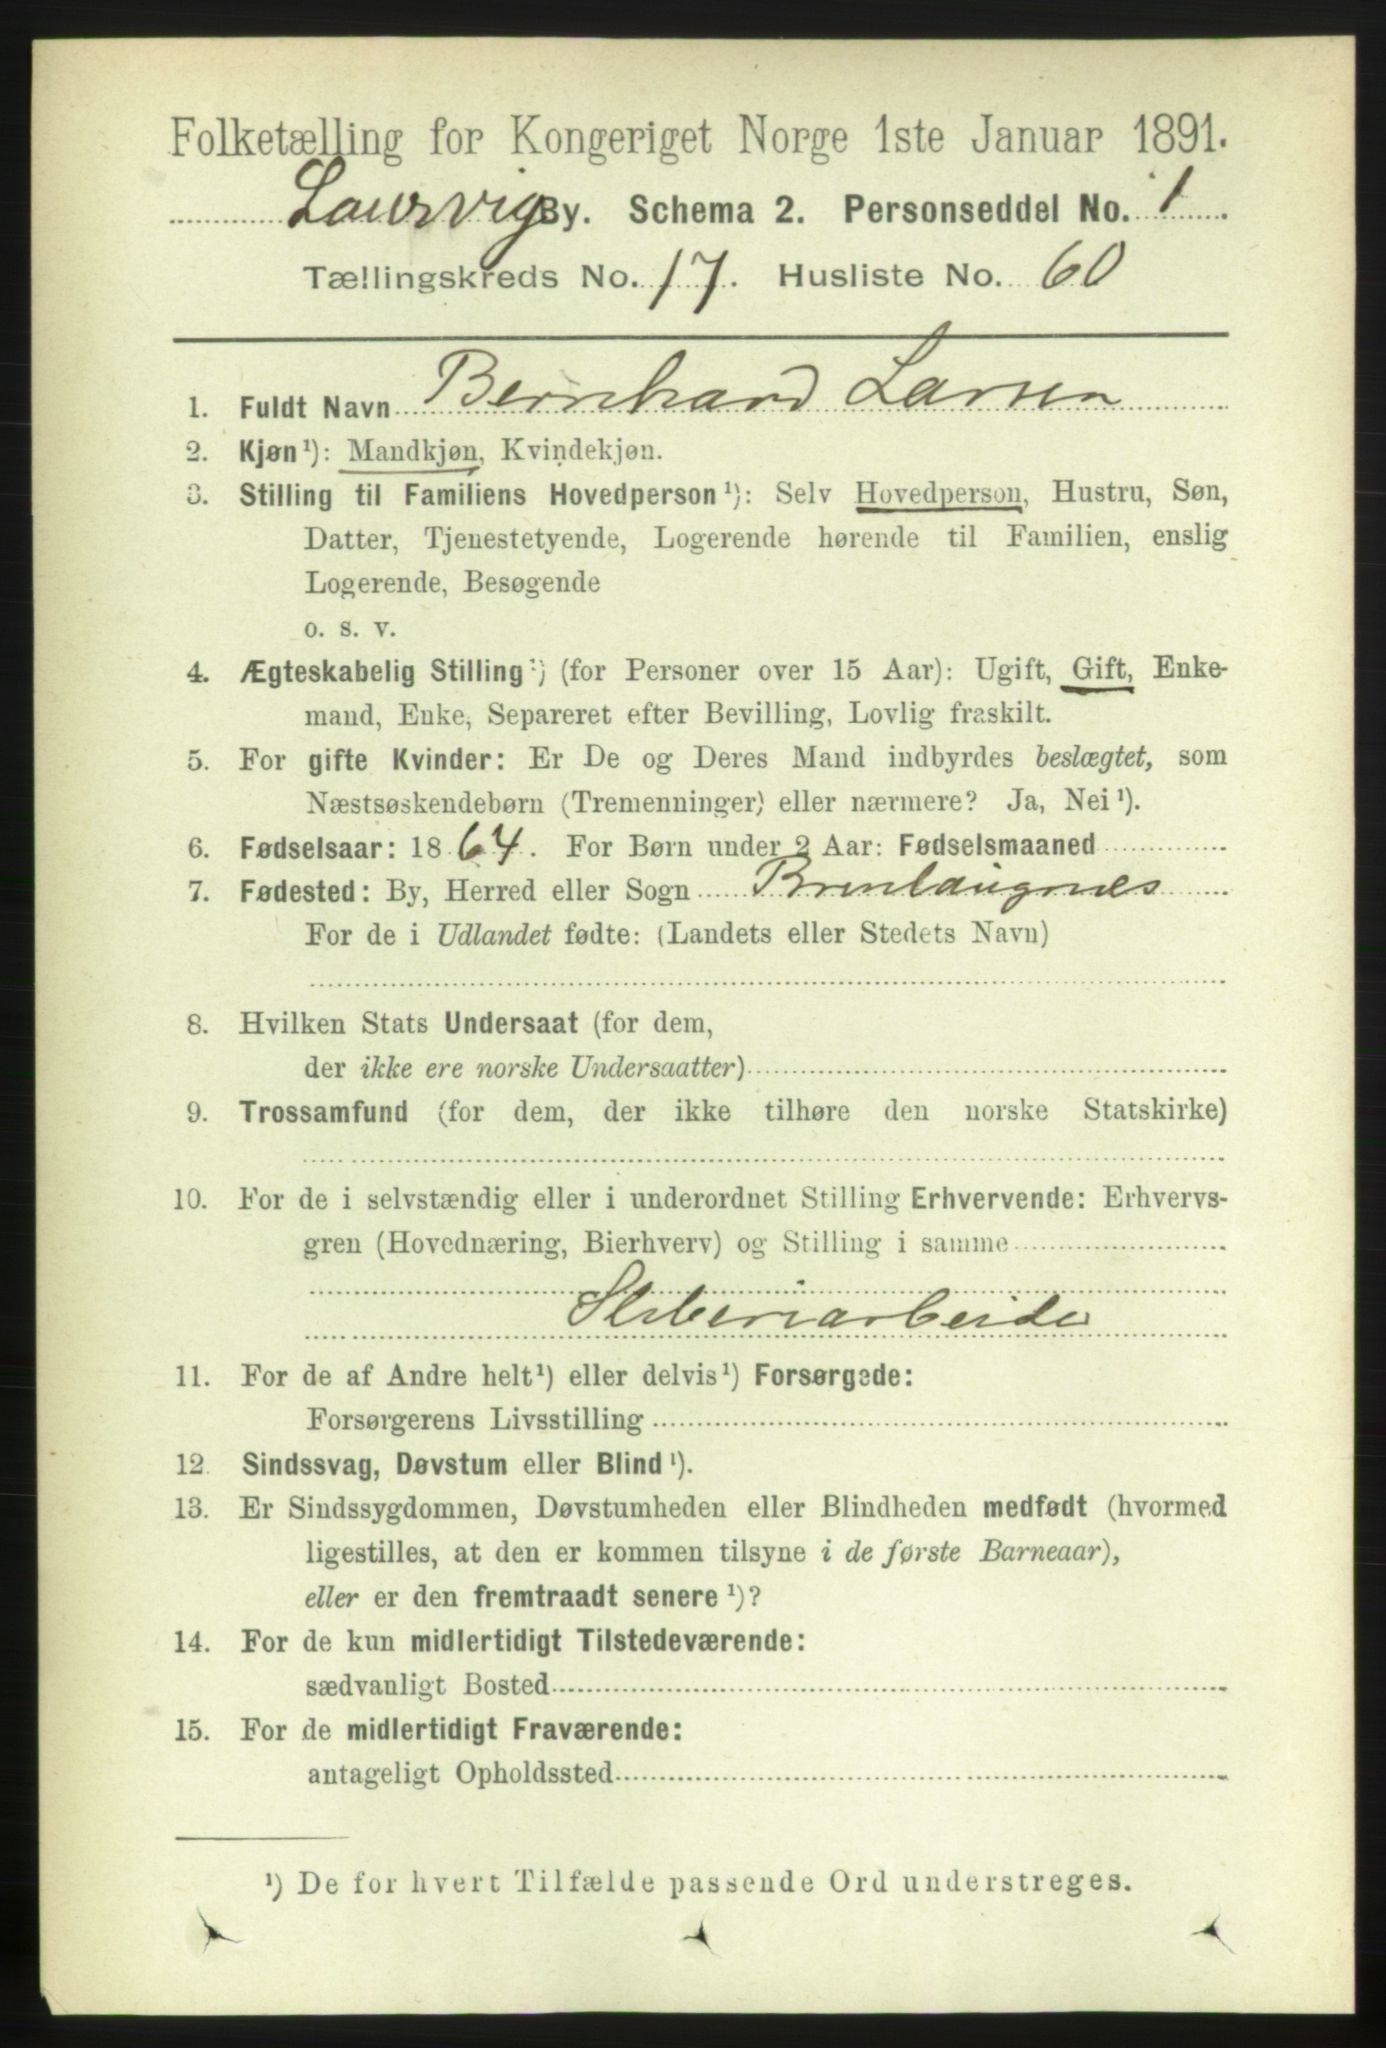 Folketælling for Kongeriget Norge 1ste Januar 1891.
Laurvig By. Schema 2. Personseddel No. 1
Tællingskreds No. 17. Husliste No. 60
1. Fuldt Navn Bernhard Larsen
2. Kjøn¹): Mandkjøn, Kvindekjøn.
3. Stilling til Familiens Hovedperson¹): Selv Hovedperson, Hustru, Søn,
Datter, Tjenestetyende, Logerende hørende til Familien, enslig
Logerende, Besøgende
o. s. v.
4. Ægteskabelig Stilling¹) (for Personer over 15 Aar): Ugift, Gift, Enke-
mand, Enke, Separeret efter Bevilling, Lovlig fraskilt.
5. For gifte Kvinder: Er De og Deres Mand indbyrdes beslægtet, som
Næstsøskendebørn (Tremenninger) eller nærmere? Ja, Nei¹).
6. Fødselsaar: 1864. For Børn under 2 Aar: Fødselsmaaned
7. Fødested: By, Herred eller Sogn Brunlaugnes
For de i Udlandet fødte: (Landets eller Stedets Navn)
8. Hvilken Stats Undersaat (for dem,
der ikke ere norske Undersaatter)
9. Trossamfund (for dem, der ikke tilhøre den norske Statskirke)
10. For de i selvstændig eller i underordnet Stilling Erhvervende: Erhvervs-
gren (Hovednæring, Bierhverv) og Stilling i samme
Sliberiarbeider
11. For de af Andre helt¹) eller delvis¹) Forsørgede:
Forsørgerens Livsstilling
12. Sindssvag, Døvstum eller Blind¹).
13. Er Sindssygdommen, Døvstumheden eller Blindheden medfødt (hvormed
ligestilles, at den er kommen tilsyne i de første Barneaar),
eller er den fremtraadt senere¹)?
14. For de kun midlertidigt Tilstedeværende:
sædvanligt Bosted
15. For de midlertidigt Fraværende:
antageligt Opholdssted
¹) De for hvert Tilfælde passende Ord understreges.